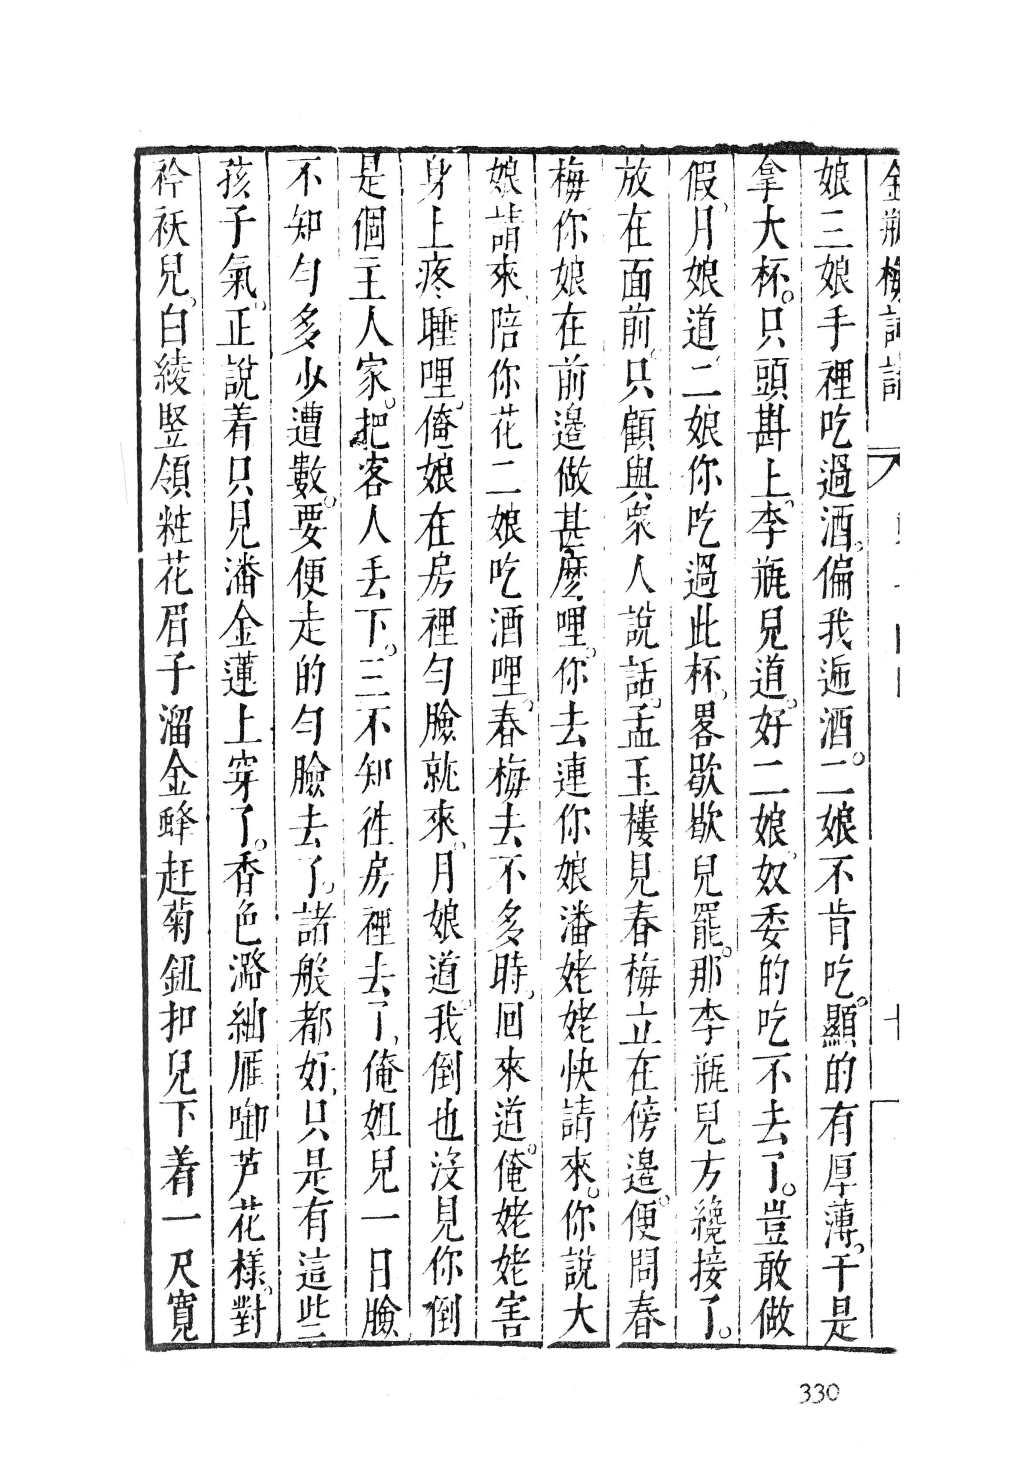 金瓶梅詞話
娘三娘手裡吃過酒。偏我逓酒。二娘不肯吃。顯的有厚薄。于是
拿大杯。只頭斟上。李瓶兒道。好二娘。奴委的吃不去了。豈敢做
假。月娘道。二娘你吃過此杯。畧歇歇兒罷。那李瓶兒方纔接了。
放在面前。只顧與衆人說話。孟玉樓見春梅立在傍邉。便問春
梅。你娘在前邉做甚麽哩。你去連你娘潘姥姥快請來。你說大
娘請來。陪你花二娘吃酒哩。春梅去不多時。回來道。俺姥姥害
身上疼。睡哩。俺娘在房裡勻臉就來。月娘道。我倒也沒見你倒
是個主人家。把客人丢下。三不知徃房裡去了。俺姐兒一日臉
不知勻多少遭數。要便走的勻臉去了。諸般都好。只是有這些
孩子氣。正說着只見潘金蓮上穿了。香色潞紬雁啣芦花樣。對
衿袄兒。白綾竪領粧花眉子溜金蜂赶菊鈕扣兒下着一尺寬
330